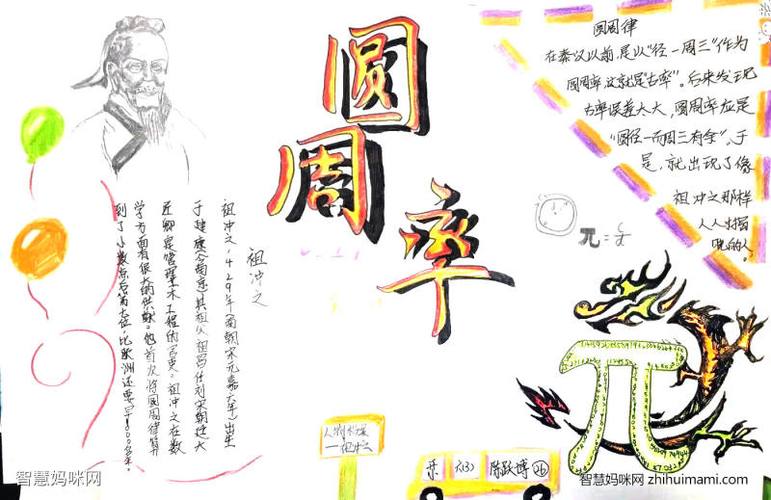 圆周率
圆周律
在秦汉以前,是以"径一周三"作为
圆周率,这就是"古率"。后来发现
古率误差太大,圆周率应是
"圆径一而周三有余",于
是,就出现了像
祖冲之那样
人人
的人。
祖冲之
祖冲之,429年(南朝宋元嘉六年)出生
于建康(今南京)其祖父祖昌任刘宋朝廷大
匠卿是管理土木工程的官吏。祖冲之在数
学方面有很大的供献。他首次将圆周律算
到了小数点后第七位,比欧洲还要早1000多年。
π=c/d
π
六(3)
陈跃博
26
智慧妈咪网
智慧妈咪网 zhihuimami.com